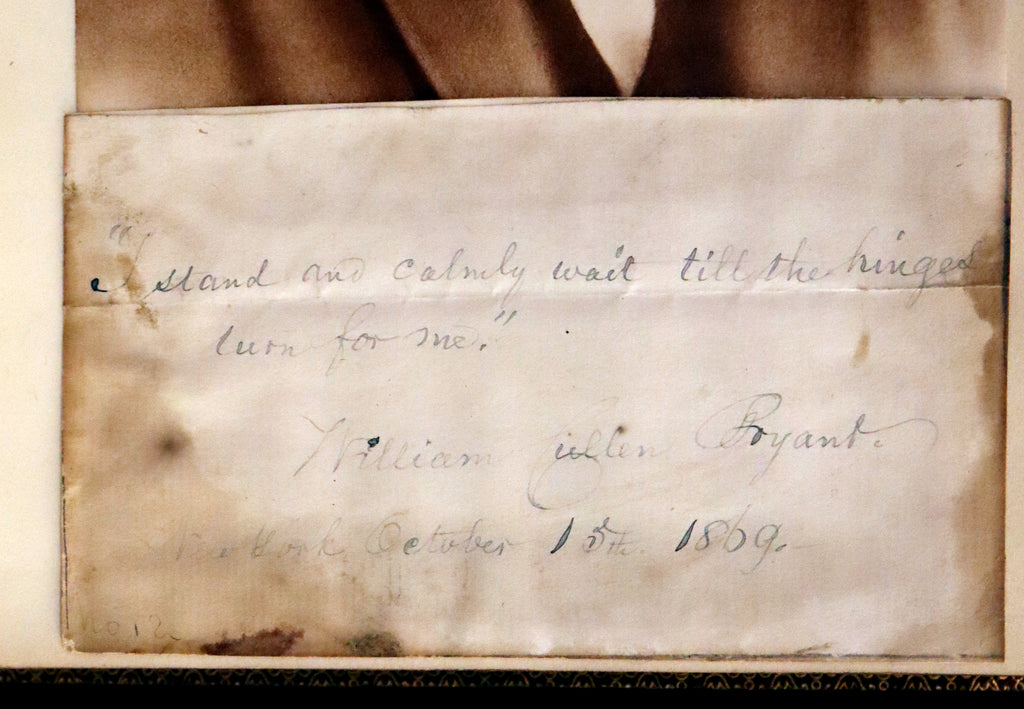 "I stand and calmly wait till the hinges
turn for me."
William Cullen Bryant.
New York October 15th. 1869.
No. 12